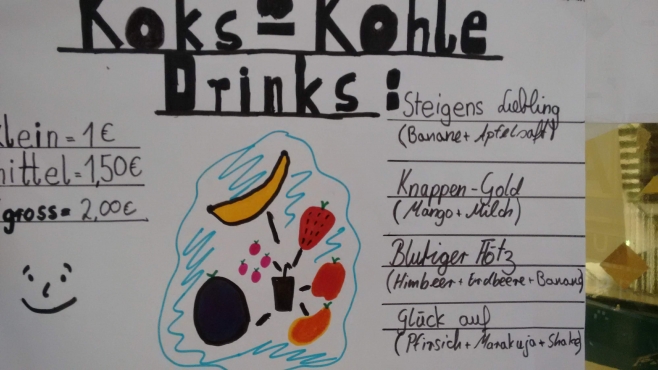 Koks = Kohle
Drinks :
klein = 1 €
mittel = 1,50€
gross = 2,00€
Steigens Liebling
(Banane + Apfelsaft)
Knappen-Gold
(Mango + Milch)
Blutiger Flötz
(Himbeer + Erdbeere + Banane)
Glück auf
(Pfirsich + Marakuja +